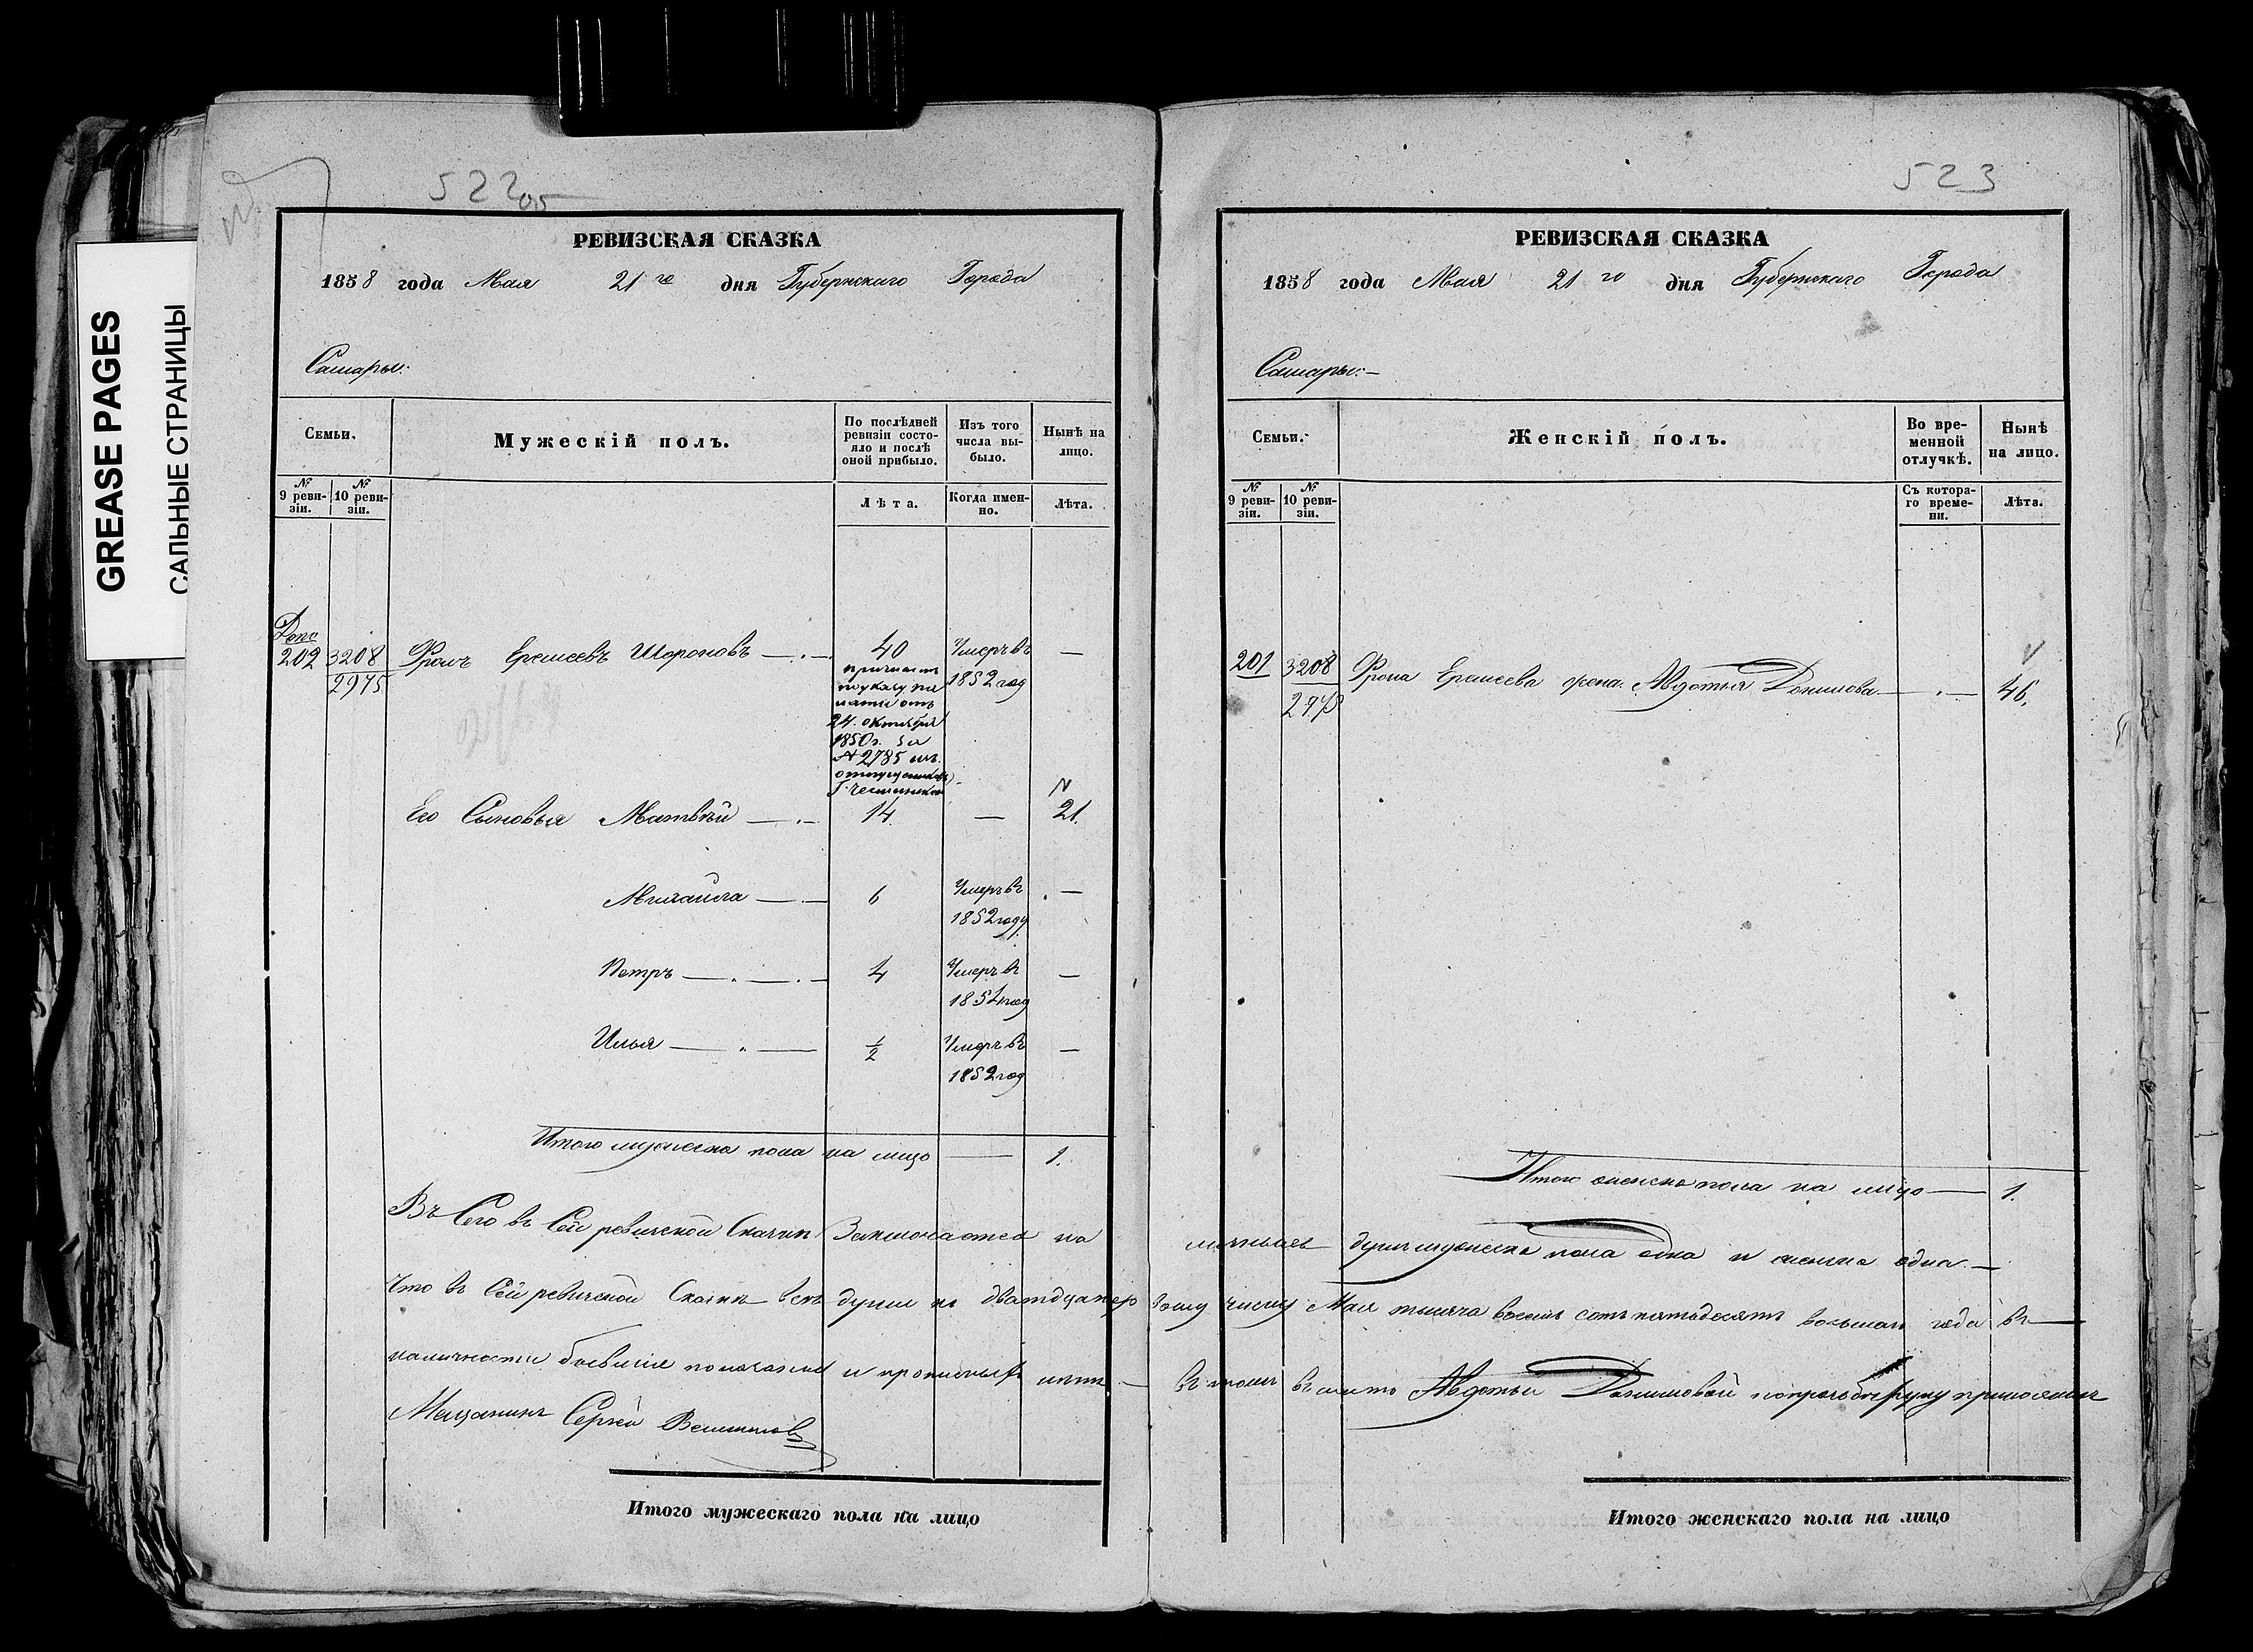 GREASE PAGES
САЛЬНЫЕ СТРАНИЦЫ
522об
РЕВИЗСКАЯ СКАЗКА
1858 года Мая 21го дня Губернскаго Города
Самары:
Семьи.
Мужескій полъ.
По послѣдней ревизіи состояло и послѣ оной прибыло.
Изъ того числа выбыло.
Нынѣ на лицо.
№ 9 ревизіи.
№ 10 ревизіи.
Лѣта.
Когда именно.
Лѣта.
Допо
202 3208 Фролъ Еремеевъ 40 Умеръ въ —
2975 1852 год
указу
24. октября
1850г. за
№ 2785 изъ
Его Сыновья Матвѣй — 14 — 21.
Михайла — 6 Умеръ въ —
1852 году
Петръ — 4 Умеръ въ —
год
Илья — 1/2 Умеръ въ —
1852 год
Итого мужеска пола на лицо — 1.
въ Сей ревизской Сказки Заключается на
Что въ Сей ревизской Сказки всѣ души къ двадцать пер
наличности бывшія показаны и прописныхъ нѣтъ —
Мещанинъ Сергѣй
Итого мужескаго пола на лицо
523
РЕВИЗСКАЯ СКАЗКА
1858 года Мая 21го дня Губернскаго Города
Самары: —
Семьи.
Женскій полъ.
Во временной отлучкѣ.
Нынѣ на лицо.
№ 9 ревизіи.
№ 10 ревизіи.
Съ котораго времени.
Лѣта.
201 3208 Фрола Еремеева жена Авдотья Данилова — 46.
Итого женска пола на лицо — 1.
душъ мужеска пола одна и женска одна. —
вому числу Мая тысяча восемь сотъ пятьдесятъ восьмаго года въ —
въ томъ вместо Авдотьи Даниловой попрозьбѣ руку приложилъ
Итого женскаго пола на лицо